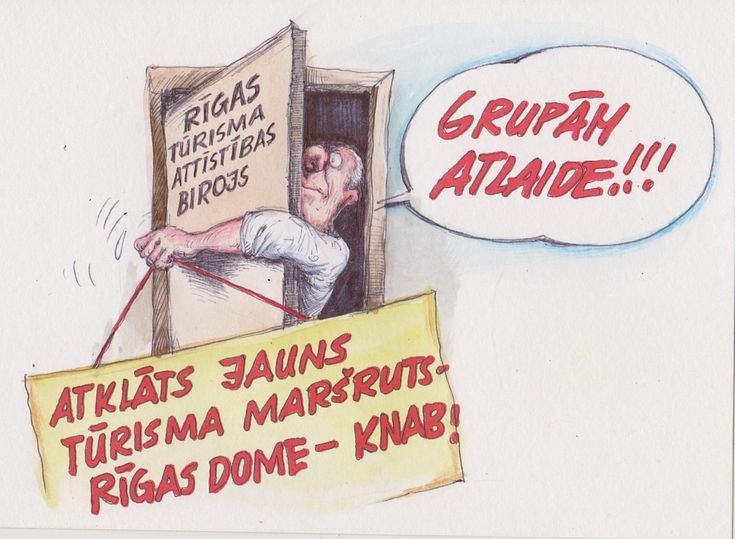 RĪGAS
TŪRISMA
ATTĪSTĪBAS
BIROJS
GRUPĀM
ATLAIDE.!!!
ATKLĀTS JAUNS
TŪRISMA MARŠRUTS-
RĪGAS DOME - KNAB!